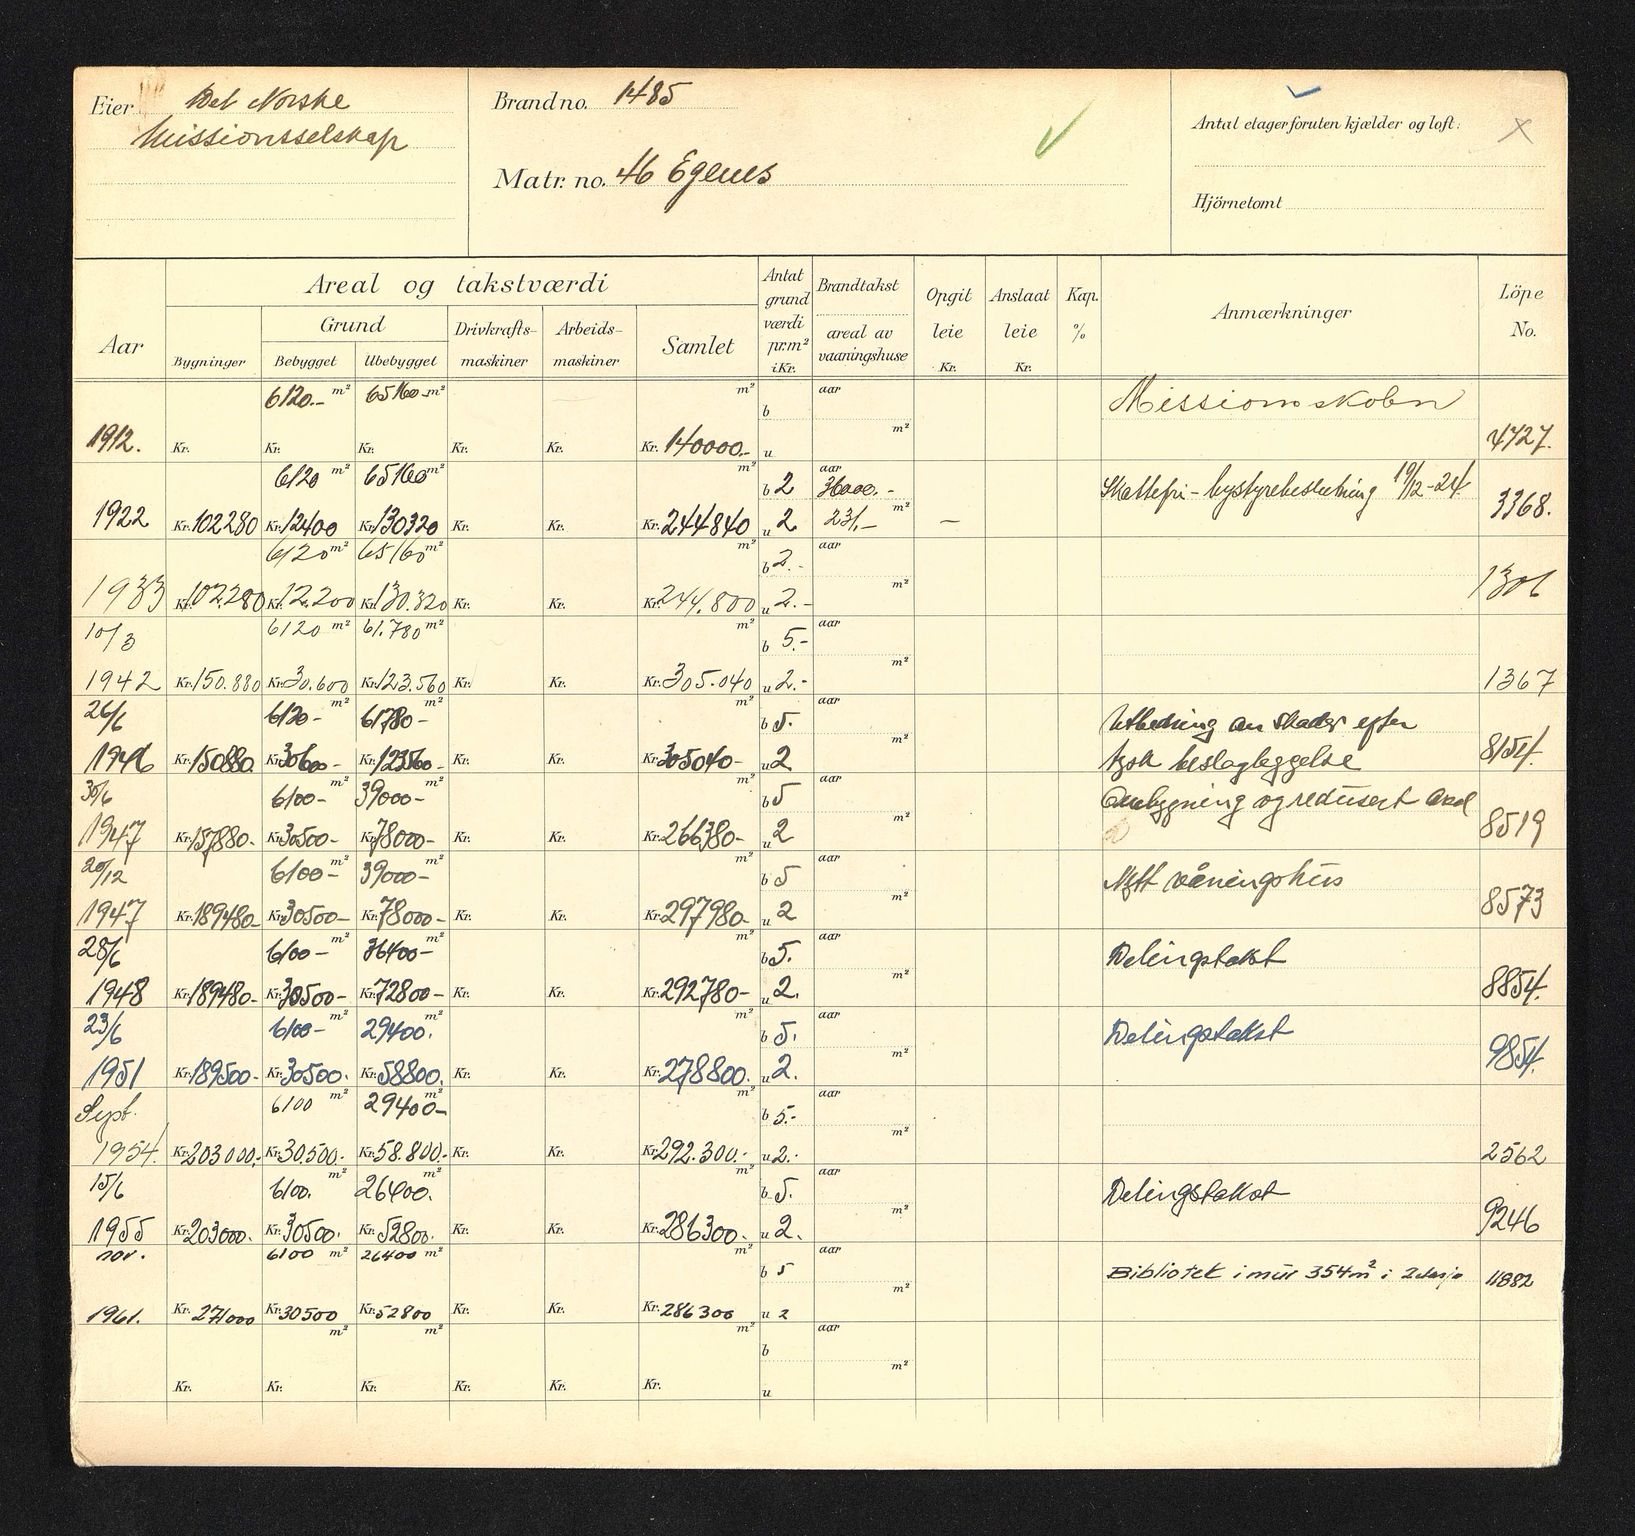 Eier Det Norske
Missionsselskap
Brand no. 1485
Matr. no. 46 Egenes
Antal etager foruten kjælder og loft: X
Hjörnetomt
Aar
Areal og takstværdi
Bygninger
Grund
Bebygget Ubebygget
Drivkrafts-
maskiner
Arbeids-
maskiner
Samlet
Antat
grund
værdi
pr. m²
i Kr.
Brandtakst
areal av
vaaningshuse
Opgit
leie
Kr.
Anslaat
leie
Kr.
Kap.
%
Anmærkninger
Löpe
No.
6120.- m² 65160 m² m² b aar Missionsskolen
1912. Kr. Kr. Kr. Kr. Kr. Kr. 140000.- u m² 4727.
6120 m² 65160 m² m² b 2 aar 36000.- Skattefri - bystyrebeslutning 19/12-24
1922 Kr. 102280 Kr. 12400 Kr. 130320 Kr. Kr. Kr. 244840 u 2 231.- m² – 3368.
6120 m² 65160 m² m² b 2.- aar
1933 Kr. 102.280 Kr. 12.200 Kr. 130.320 Kr. Kr. Kr. 244.800 u 2.- m² 1306
10/3 6120 m² 61.780 m² m² b 5.- aar
1942 Kr. 150.880 Kr. 30.600 Kr. 123.560 Kr. Kr. Kr. 305.040 u 2.- m² 1367
26/6 6120- m² 61780- m² m² b 5. aar Utbedring av skader efter
1946 Kr. 150880. Kr. 30600- Kr. 123560- Kr. Kr. Kr. 305040- u 2 m² tysk beslagleggelse 8154.
30/6 6100- m² 39000- m² m² b 5 aar Ombygning og redusert areal
1947 Kr. 157880- Kr. 30500- Kr. 78000- Kr. Kr. Kr. 266380- u 2 m² 8519
20/12 6100- m² 39000- m² m² b 5 aar Nytt våningshus
1947 Kr. 189480- Kr. 30500- Kr. 78000- Kr. Kr. Kr. 297980- u 2 m² 8573
28/6 6100- m² 36400- m² m² b 5. aar Delingstakst
1948 Kr. 189480- Kr. 30500- Kr. 72800- Kr. Kr. Kr. 292780- u 2. m² 8854.
23/6 6100- m² 29400. m² m² b 5. aar Delingstakst
1951 Kr. 189500- Kr. 30500. Kr. 58800. Kr. Kr. Kr. 278800. u 2. m² 9854.
Sept. 6100 m² 29400- m² m² b 5.- aar
1954. Kr. 203000.- Kr. 30.500.- Kr. 58.800.- Kr. Kr. Kr. 292.300.- u 2.- m² 2562
15/6 6100. m² 26400. m² m² b 5. aar Delingstakst
1955 Kr. 203000. Kr. 30500. Kr. 52800. Kr. Kr. Kr. 286300. u 2. m² 9246
nov. 6100 m² 26400 m² m² b 5 aar Bibliotek i mur 354 m² i 2 etasje 11882
1961. Kr. 271000 Kr. 30500 Kr. 52800 Kr. Kr. Kr. 286300 u 2 m²
m² m² m² b aar
Kr. Kr. Kr. Kr. Kr. Kr. u m²